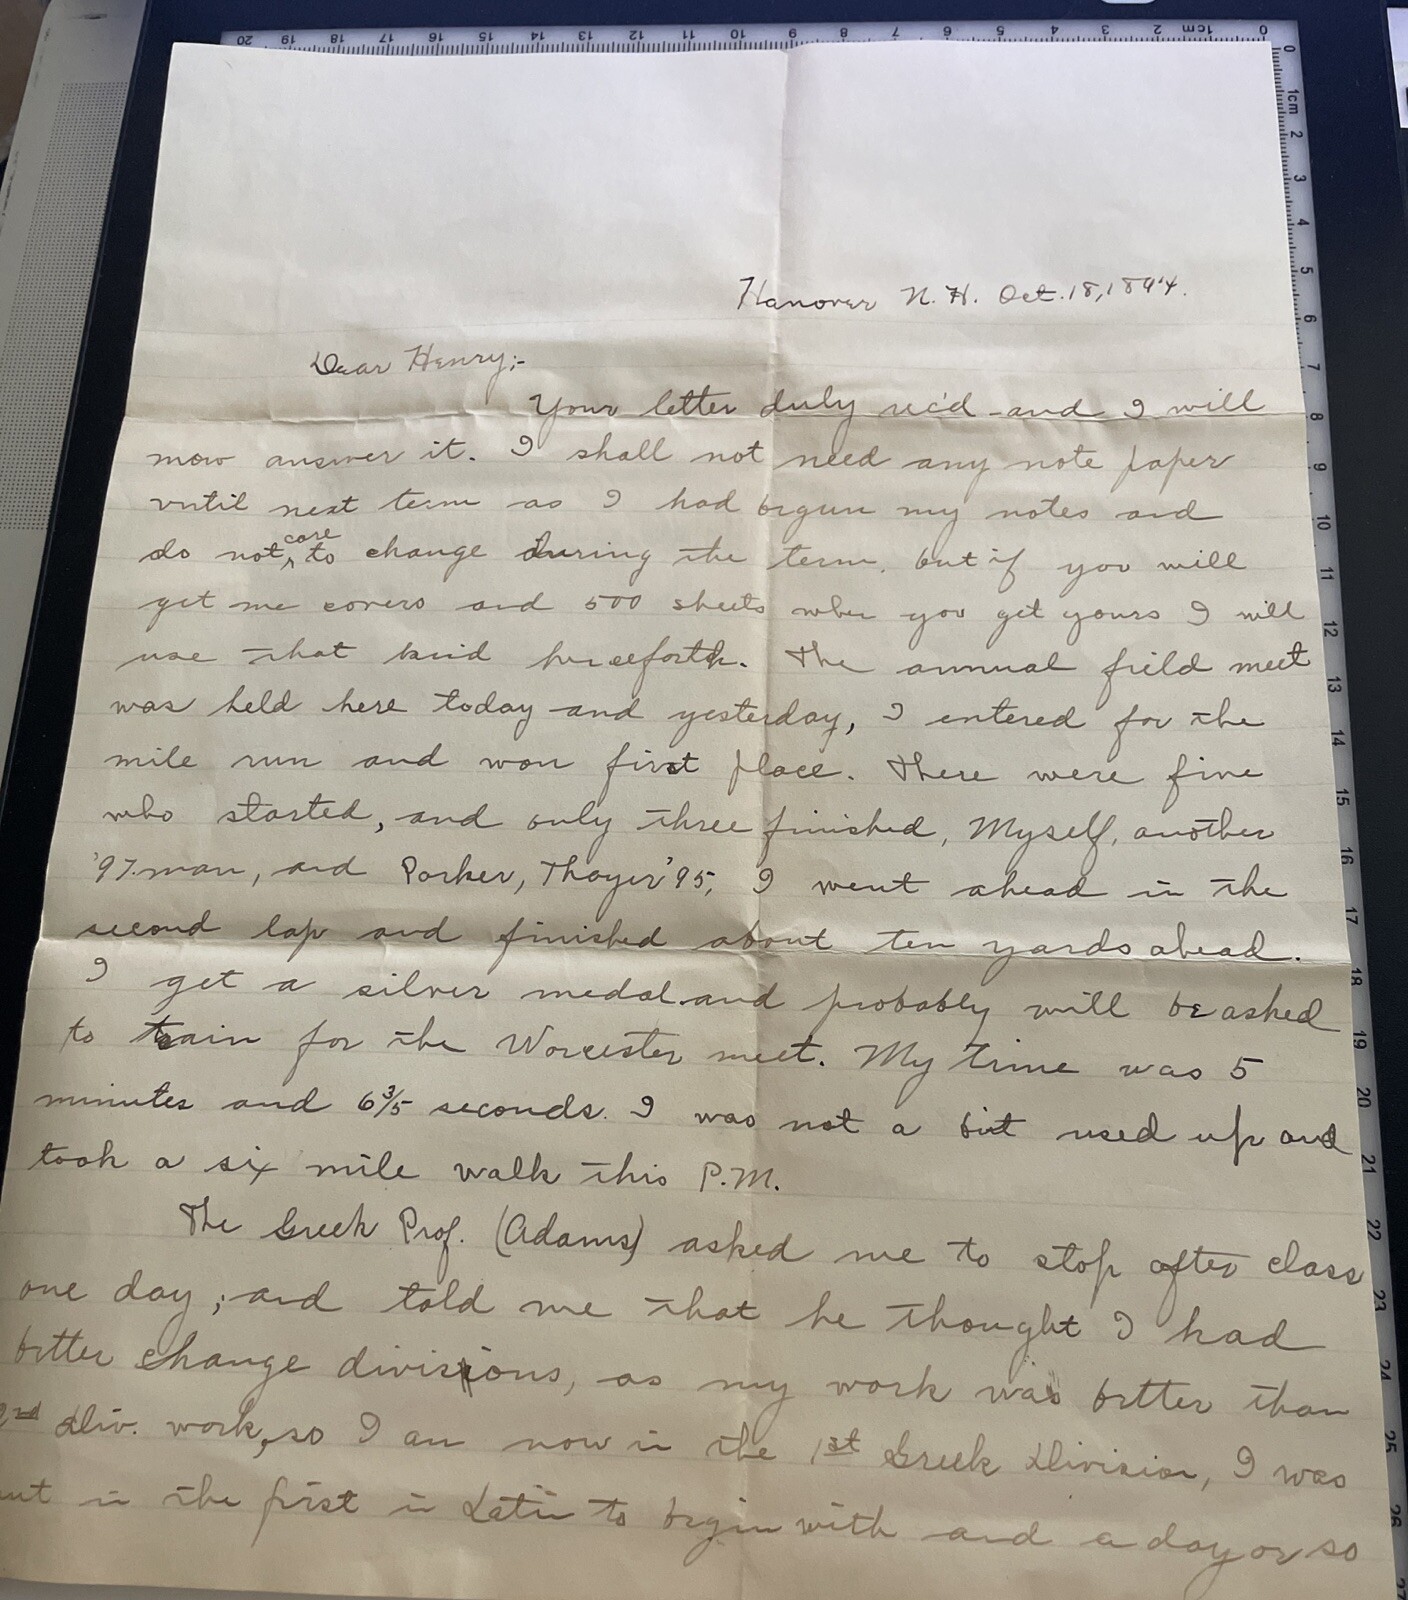 Hanover N.H. Oct. 18, 1894.
Dear Henry;-
Your letter duly rec'd and I will
now answer it. I shall not need any note paper
until next term as I had begun my notes and
do not care to change during the term, but if you will
get me covers and 500 sheets when you get yours I will
use that kind henceforth. The annual field meet
was held here today and yesterday, I entered for the
mile run and won first place. There were five
who started, and only three finished, Myself, another
'97 man, and Parker, Thayer '95, I went ahead in the
second lap and finished about ten yards ahead.
I get a silver medal and probably will be asked
to train for the Worcester meet. My time was 5
minutes and 6 3/5 seconds. I was not a bit used up and
took a six mile walk this P.M.
The Greek Prof. (Adams) asked me to stop after class
one day; and told me that he thought I had
better change divisions, as my work was better than
2nd Div. work, so I am now in the 1st Greek Division, I was
in the first in Latin to begin with and a day or so
20 19 18 17 16 15 14 13 12 11 10 9 8 7 6 5 4 3 2 1cm 0
0 1cm 2 3 4 5 6 7 8 9 10 11 12 13 14 15 16 17 18 19 20 21 22 23 24 25 26